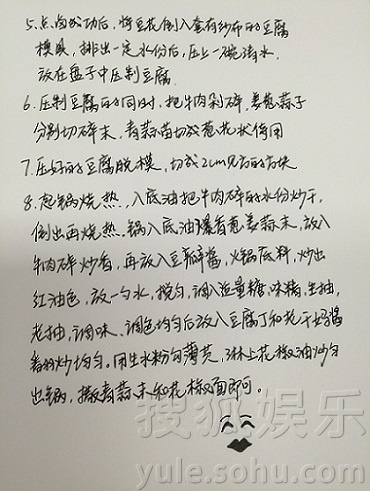 5. 点卤成功后，将豆花倒入套有纱布的豆腐
模具，排出一定水份后，压上一碗清水
放在盘子中压制豆腐.
6. 压制豆腐的同时，把牛肉剁碎，姜葱蒜子
分别切碎末，青蒜苗切成葱花状待用
7. 压好的豆腐脱模，切成2cm见方的方块
8. 起锅烧热，入底油把牛肉碎的水份炒干，
倒出再烧热，锅入底油爆香葱姜蒜末，放入
牛肉碎炒香，再放入豆瓣酱，火锅底料，炒出
红油色，放一勺水，搅匀，调入适量糖，味精，生抽，
老抽，调味、调色均匀后放入豆腐丁和老干妈酱
翻炒均匀。用生水粉勾薄芡，淋上花椒油炒匀
出锅，撒青蒜末和花椒面即可。
搜狐娱乐
yule.sohu.com